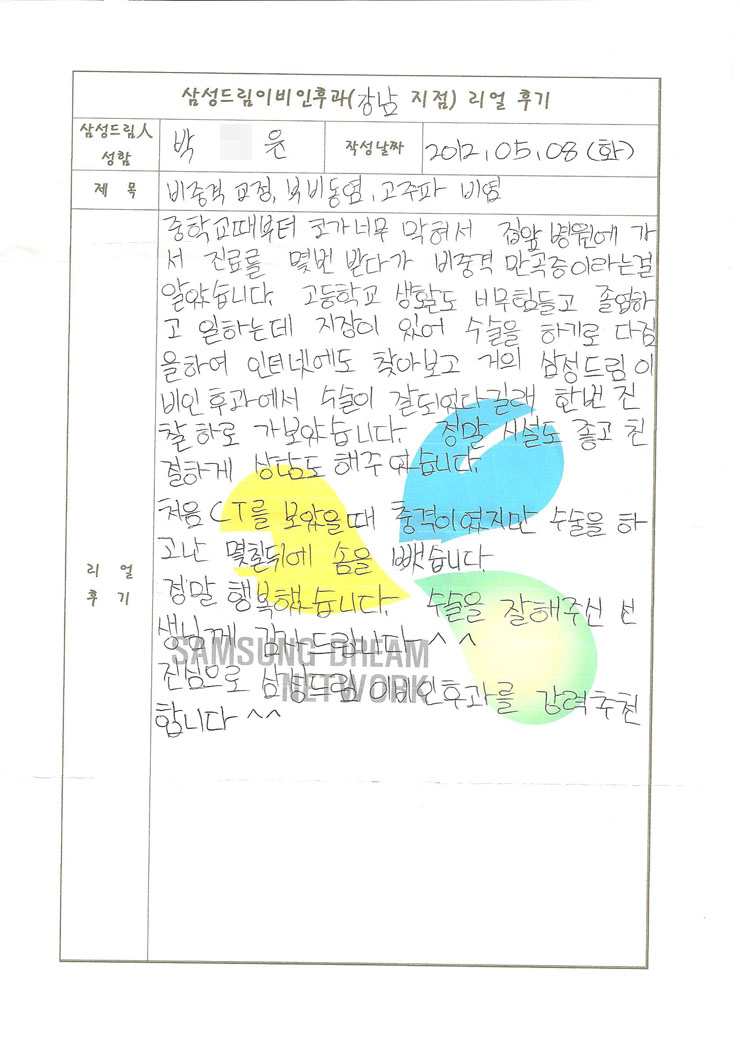 삼성드림이비인후과(강남 지점) 리얼 후기
삼성드림人 성함 박 윤 작성날짜 2012.05.08 (화)
제 목 비중격 교정, 부비동염, 고주파 비염
리 얼 후 기
중학교때부터 코가너무 막혀서 집앞 병원에 가
서 진료를 몇번 받다가 비중격 만곡증이라는걸
알았습니다. 고등학교 생활도 너무힘들고 졸업하
고 일하는데 지장이 있어 수술을 하기로 다짐
을하여 인터넷에도 찾아보고 거의 삼성드림 이
비인 후과에서 수술이 잘되었다길래 한번 진
찰 하로 가보았습니다. 정말 시설도 좋고 친
절하게 상담도 해주셨습니다.
처음 CT를 보았을때 충격이였지만 수술을 하
고난 몇일뒤에 솜을 뺐습니다.
정말 행복했습니다. 수술을 잘해주신 선
생님께 감사드립니다 ^^
진심으로 삼성드림 이비인후과를 강력추천
합니다 ^^
SAMSUNG DREAM
NETWORK